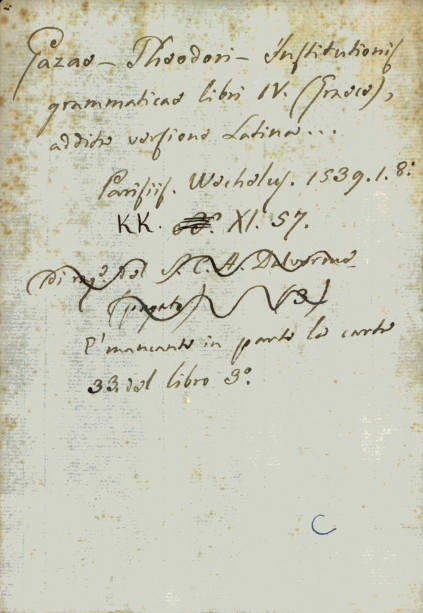 Gazae - Theodori - Institutionis
grammaticae libri IV. (Graece),
addita versione Latina...
Parisiis. Wechelus. 1539. 1. 8:
KK. XI. 57.
del S. C. A.
(pagato) (3)
E' mancante in parte la carta
33. del libro 3º.
C